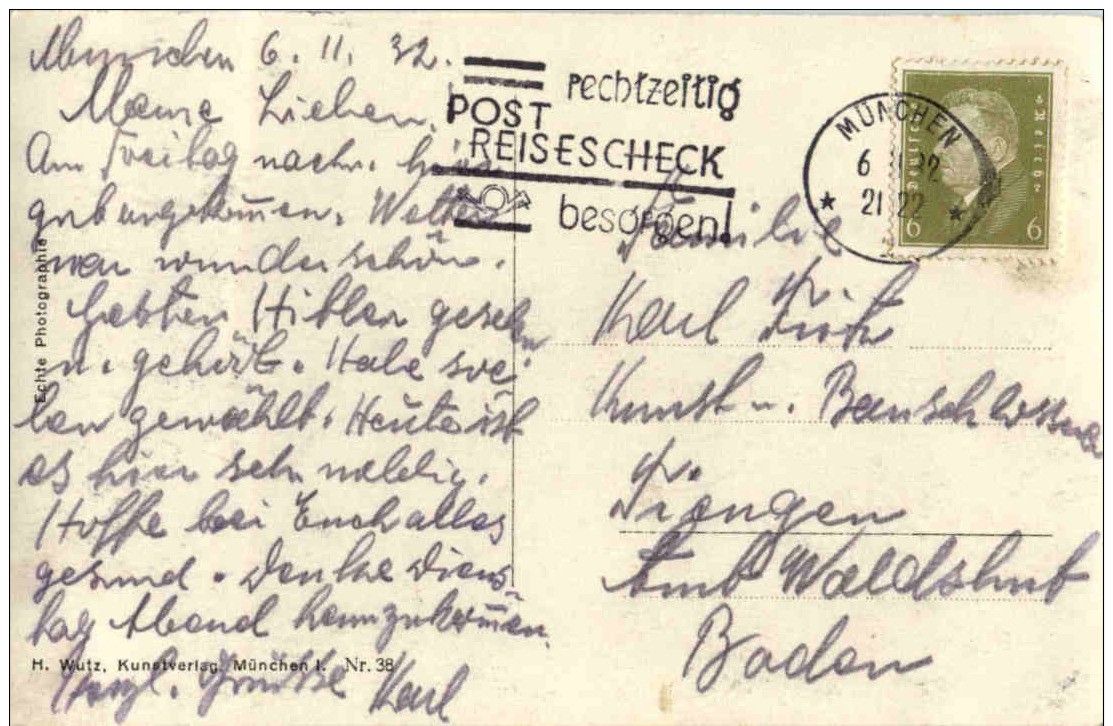 München 6. 11. 32.
Meine Lieben!
Am Freitag nachm. hier
gut angekommen. Wetter
war wunderschön.
Hitler gesehen
u. gehört. Habe soe-
ben gewählt. Heute ist
es hier sehr neblig.
Hoffe bei Euch alles
gesund. Denke Diens-
tag Abend heimzukommen.
Herzl. Grüße Karl
Echte Photographie
H. Wutz, Kunstverlag, München I. Nr. 38
rechtzeitig
POST
REISESCHECK
besorgen!
MÜNCHEN
6 32
21 22
6 6
Familie
Karl
Kunst u. Bauschlosser
Tiengen
Amt Waldshut
Baden